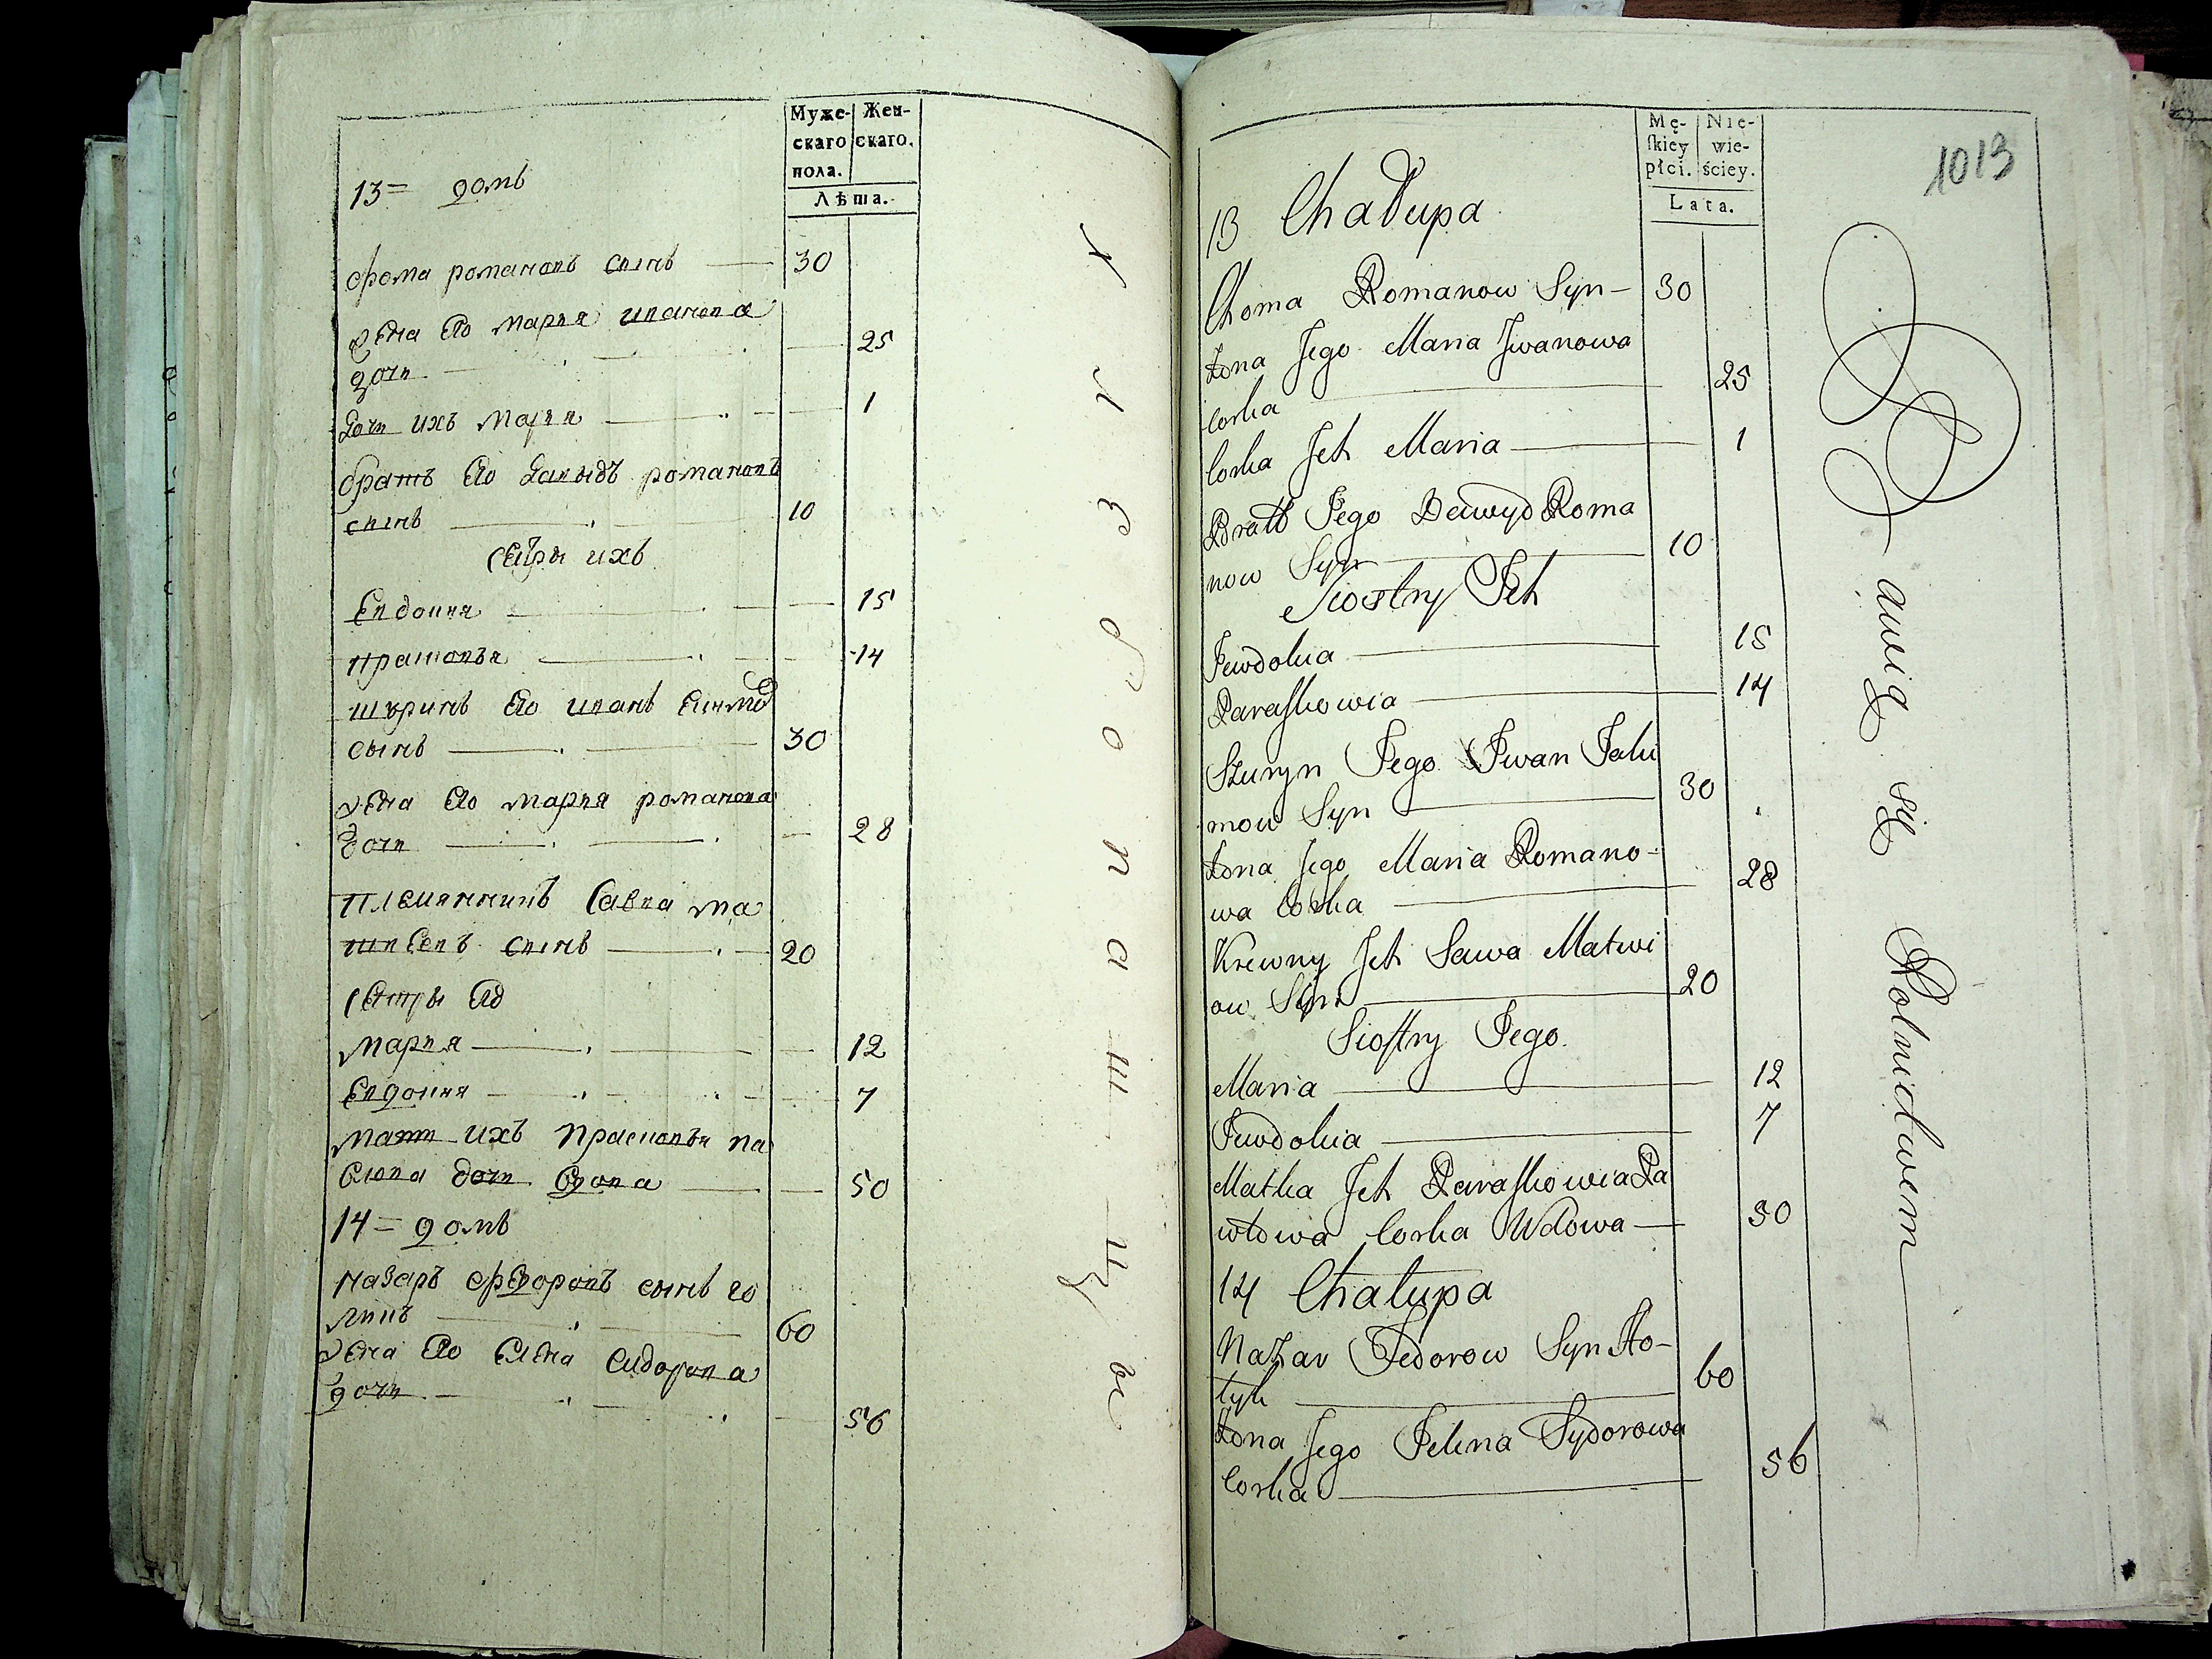 Муже- Жен-
скаго скаго.
пола.
Лѣта.
13 = домъ
Фома романовъ сынъ — 30
жена его Марья иванова
дочь — 25
дочь ихъ Марья — 1
братъ его давыдъ романовъ
сынъ — 10
сестры ихъ
Евдокия — 15
Прасковья — 14
шуринъ его иванъ
сынъ — 30
жена его марья романова
дочь — 28
племянникъ Савка ма
твеевъ сынъ — 20
сестры его
Марья — 12
Евдокия — 7
мать ихъ Прасковья па
влова дочь вдова — 50
14 = домъ
Назаръ Федоровъ сынъ го
60
жена его Елена Сидорова
дочь — 56
хлѣбопашцы
Mę- Nie-
skiey wie-
płci. ściey.
Lata.
1013
13 Chałupa
Choma Romanow Syn — 30
Żona Jego Maria Jwanowa
Corka — 25
Corka Jch Maria — 1
Bratt Jego Dawyd Roma
now Syn — 10
Siostry Jch
Jewdokia — 15
Paraskowia — 14
Szuryn Jego Jwan Jaki
mow Syn — 30
Żona Jego Maria Romano-
wa Corka — 28
Krewny Jch Sawa Matwi
ow Syn — 20
Siostry Jego
Maria — 12
Jewdokia — 7
Matka Jch Paraskowia Pa
włowa Corka Wdowa — 50
14 Chałupa
Nazar Fedorow Syn Ho-
60
Żona Jego Jelena Sydorowa
Corka — 56
Bawią się Rolnictwem